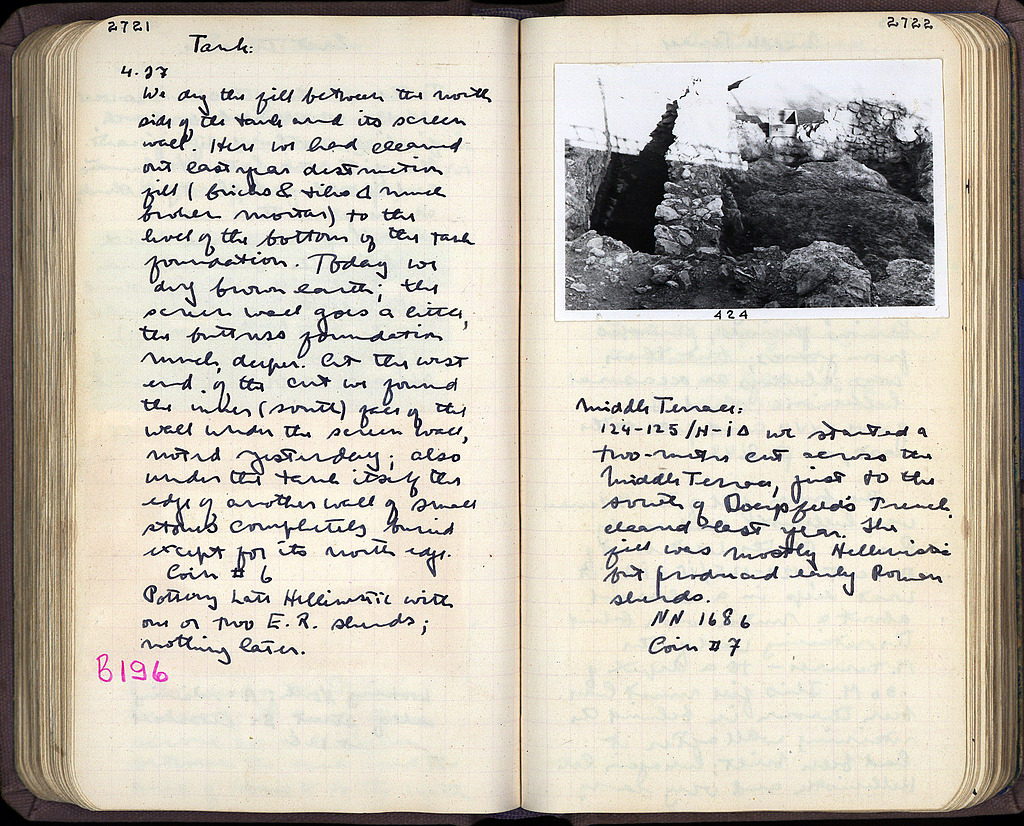 2721
Tank
4.27
We dug the fill between the north
side of the tank and its screen
wall. Here we had cleared
out last year destruction
fill (bricks & tiles & much
broken mortar) to the
level of the bottom of the tank
foundation. Today we
dug brown earth; the
screen wall goes a little,
the buttress foundation
much, deeper. At the west
end of the cut we found
the inner (south) face of the
wall under the screen wall,
noted yesterday; also
under the tank itself the
edge of another wall of small
stones completely buried
except for its north edge.
Coin # 6
Pottery Late Hellenistic with
one or two E.R. sherds;
nothing later.
B196
2722
424
Middle Terrace:
124-125/H-iΔ we started a
two-metre cut across the
Middle Terrace, just to the
south of Doerpfeld's Trench
cleared last year. The
fill was mostly Hellenistic
but produced early Roman
sherds.
NN 1686
Coin #7